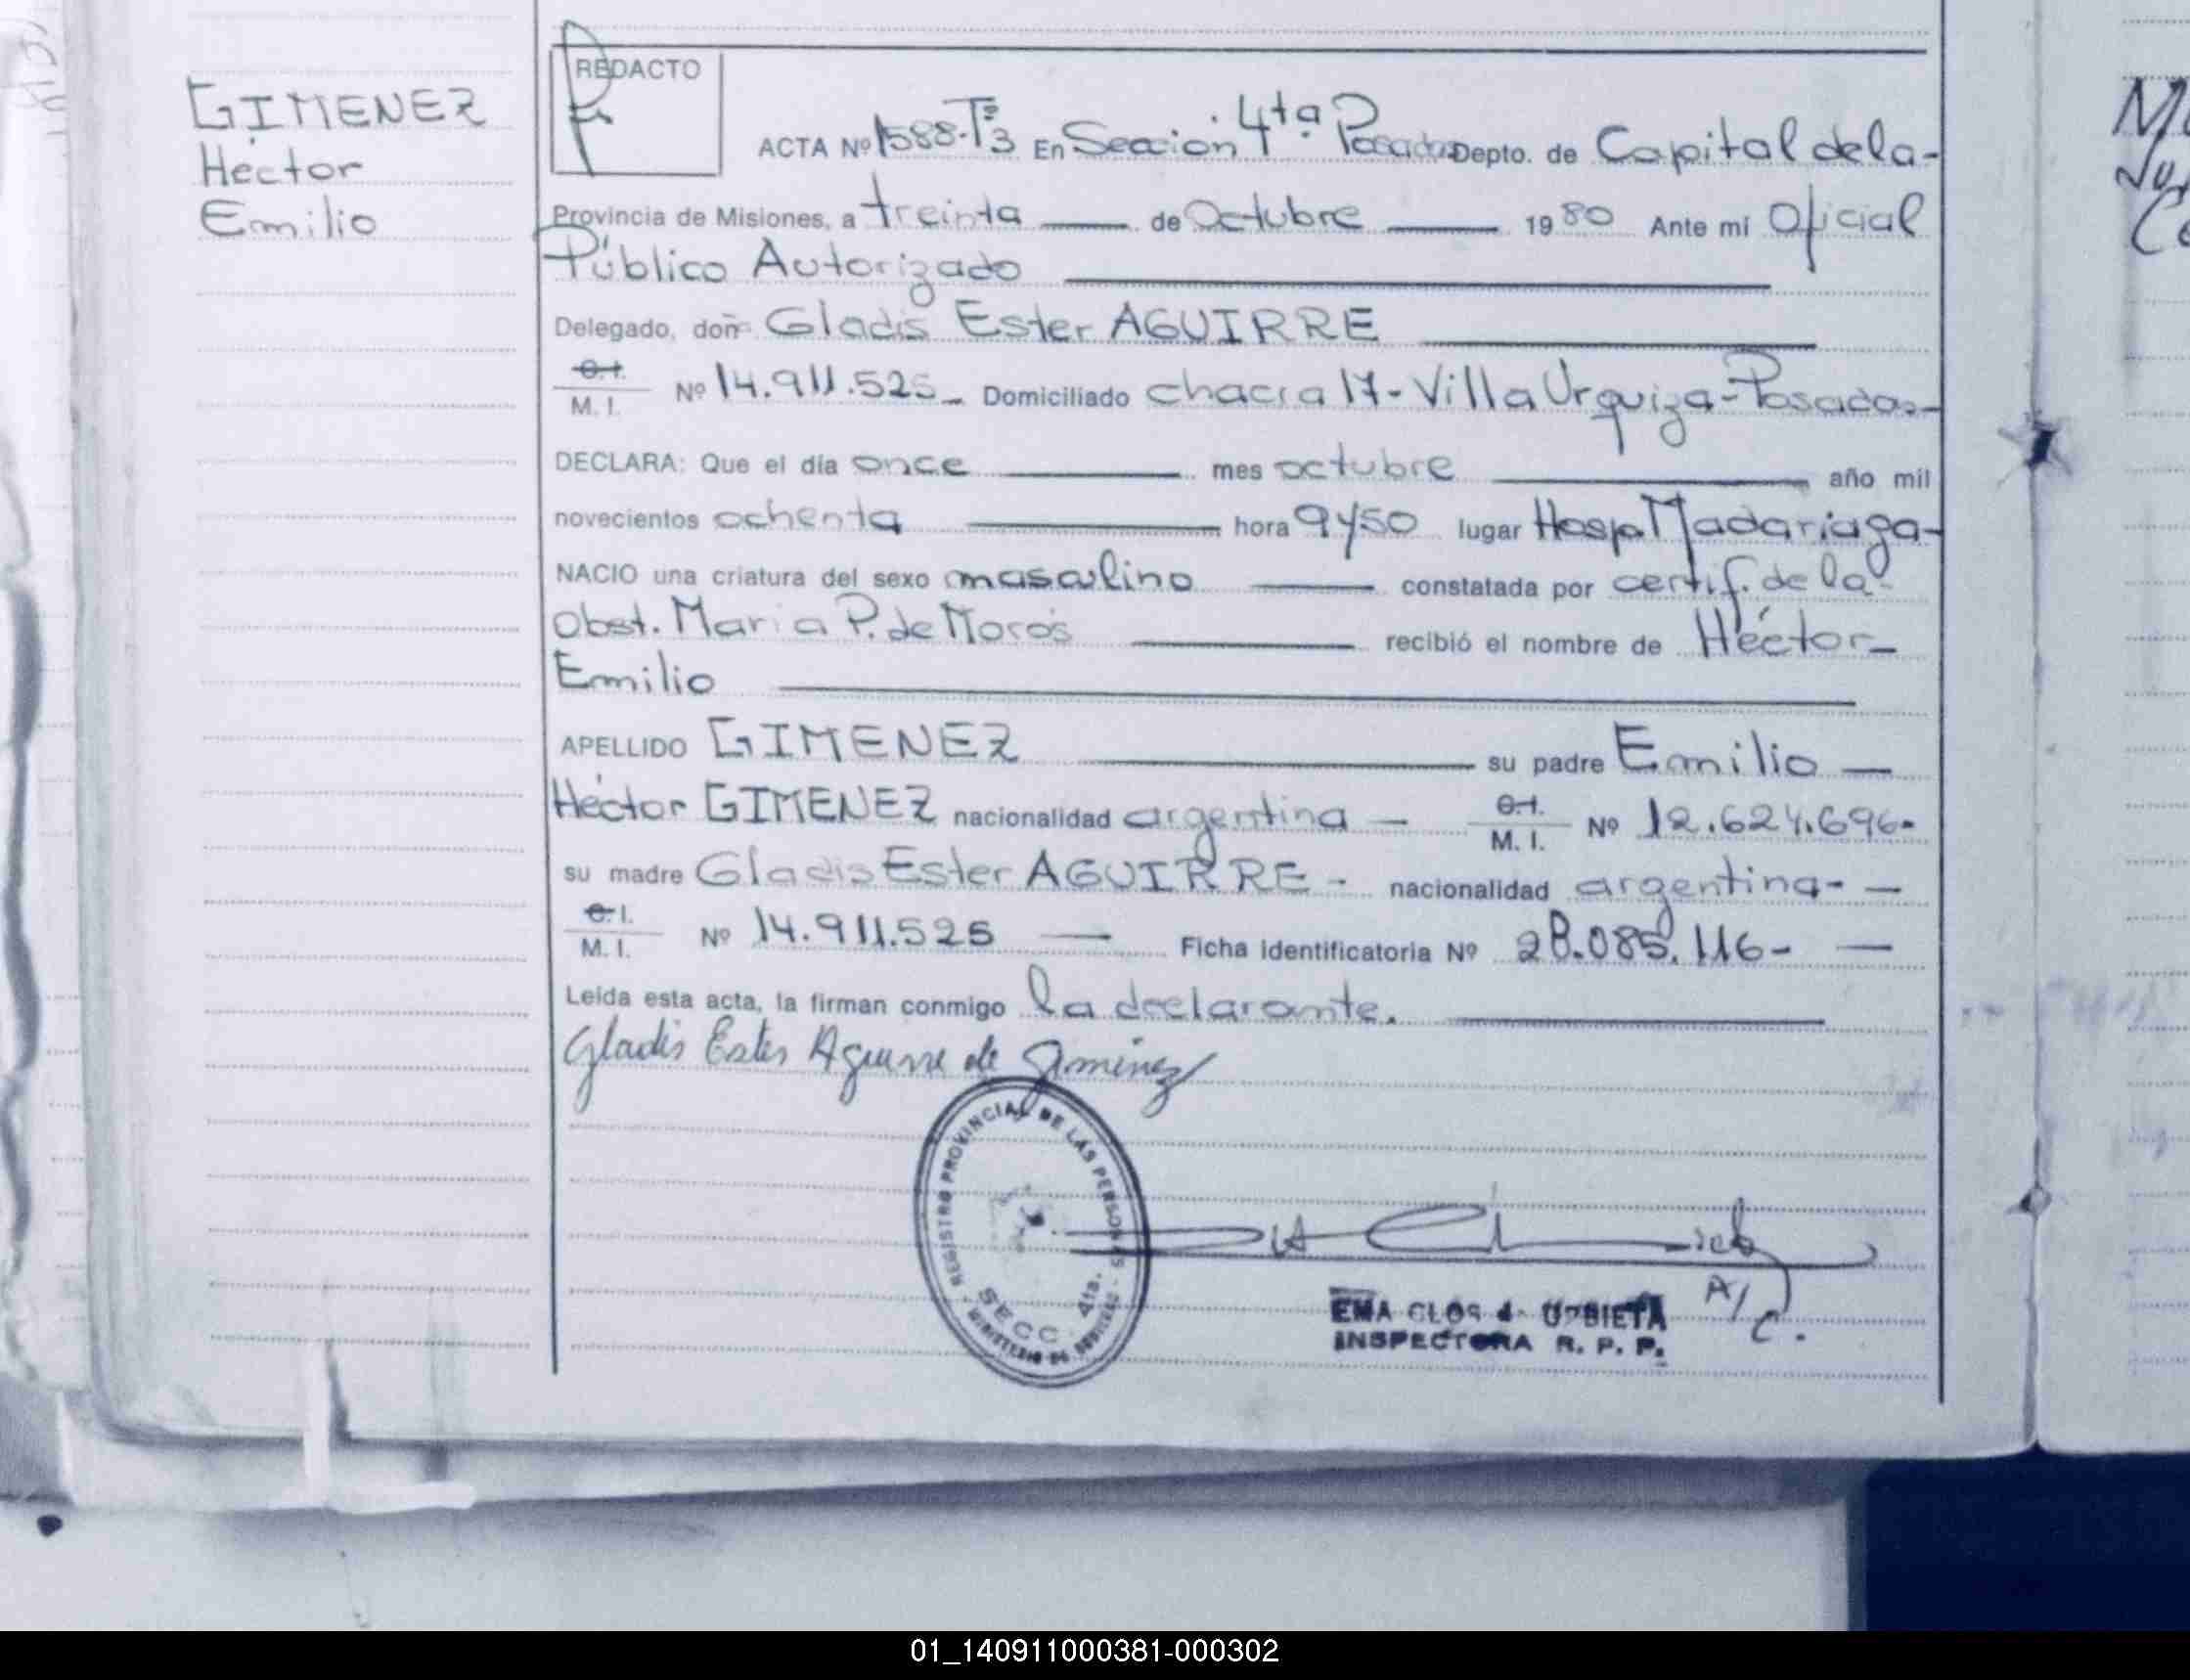 GIMENEZ
Héctor
Emilio
REDACTO
ACTA Nº 1588-Tº3 En Sección 4ta Posadas Depto. de Capital de la-
Provincia de Misiones, a treinta de Octubre 1980 Ante mí Oficial
Público Autorizado
Delegado, doña Gladis Ester AGUIRRE
C.I.
M.I. Nº 14.911.525- Domiciliado chacra 17-Villa Urquiza-Posadas-
DECLARA: Que el día once mes octubre año mil
novecientos ochenta hora 9y50 lugar Hosp. Madariaga-
NACIO una criatura del sexo masculino constatada por certif. de la
Obst. Maria P. de Morós recibió el nombre de Héctor-
Emilio
APELLIDO GIMENEZ su padre Emilio
Héctor GIMENEZ nacionalidad argentina C.I.
M.I. Nº 12.624.696-
su madre Gladis Ester AGUIRRE- nacionalidad argentina-
C.I.
M.I. Nº 14.911.525 Ficha identificatoria Nº 28.085.116-
Leída esta acta, la firman conmigo la declarante.
Gladis Ester Aguirre de Gimenez
REGISTRO PROVINCIAL DE LAS PERSONAS
SECC. 4ta.
MINISTERIO DE
A/C.
EMA CLOS d URBIETA
INSPECTORA R. P. P.
01_140911000381-000302